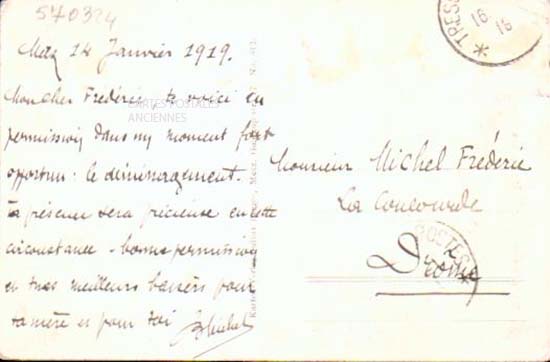 570324
Metz 14 Janvier 1919.
Mon cher Frédéric, te voici en
permission dans un moment fort
opportun - le déménagement.
Ta présence sera précieuse en cette
circonstance - bonne permission
et mes meilleurs baisers pour
ta mère et pour toi
CARTES POSTALES
ANCIENNES
TRESO
16
16
*
Monsieur Michel Frédéric
La Concourde
Drôme
POSTES
*